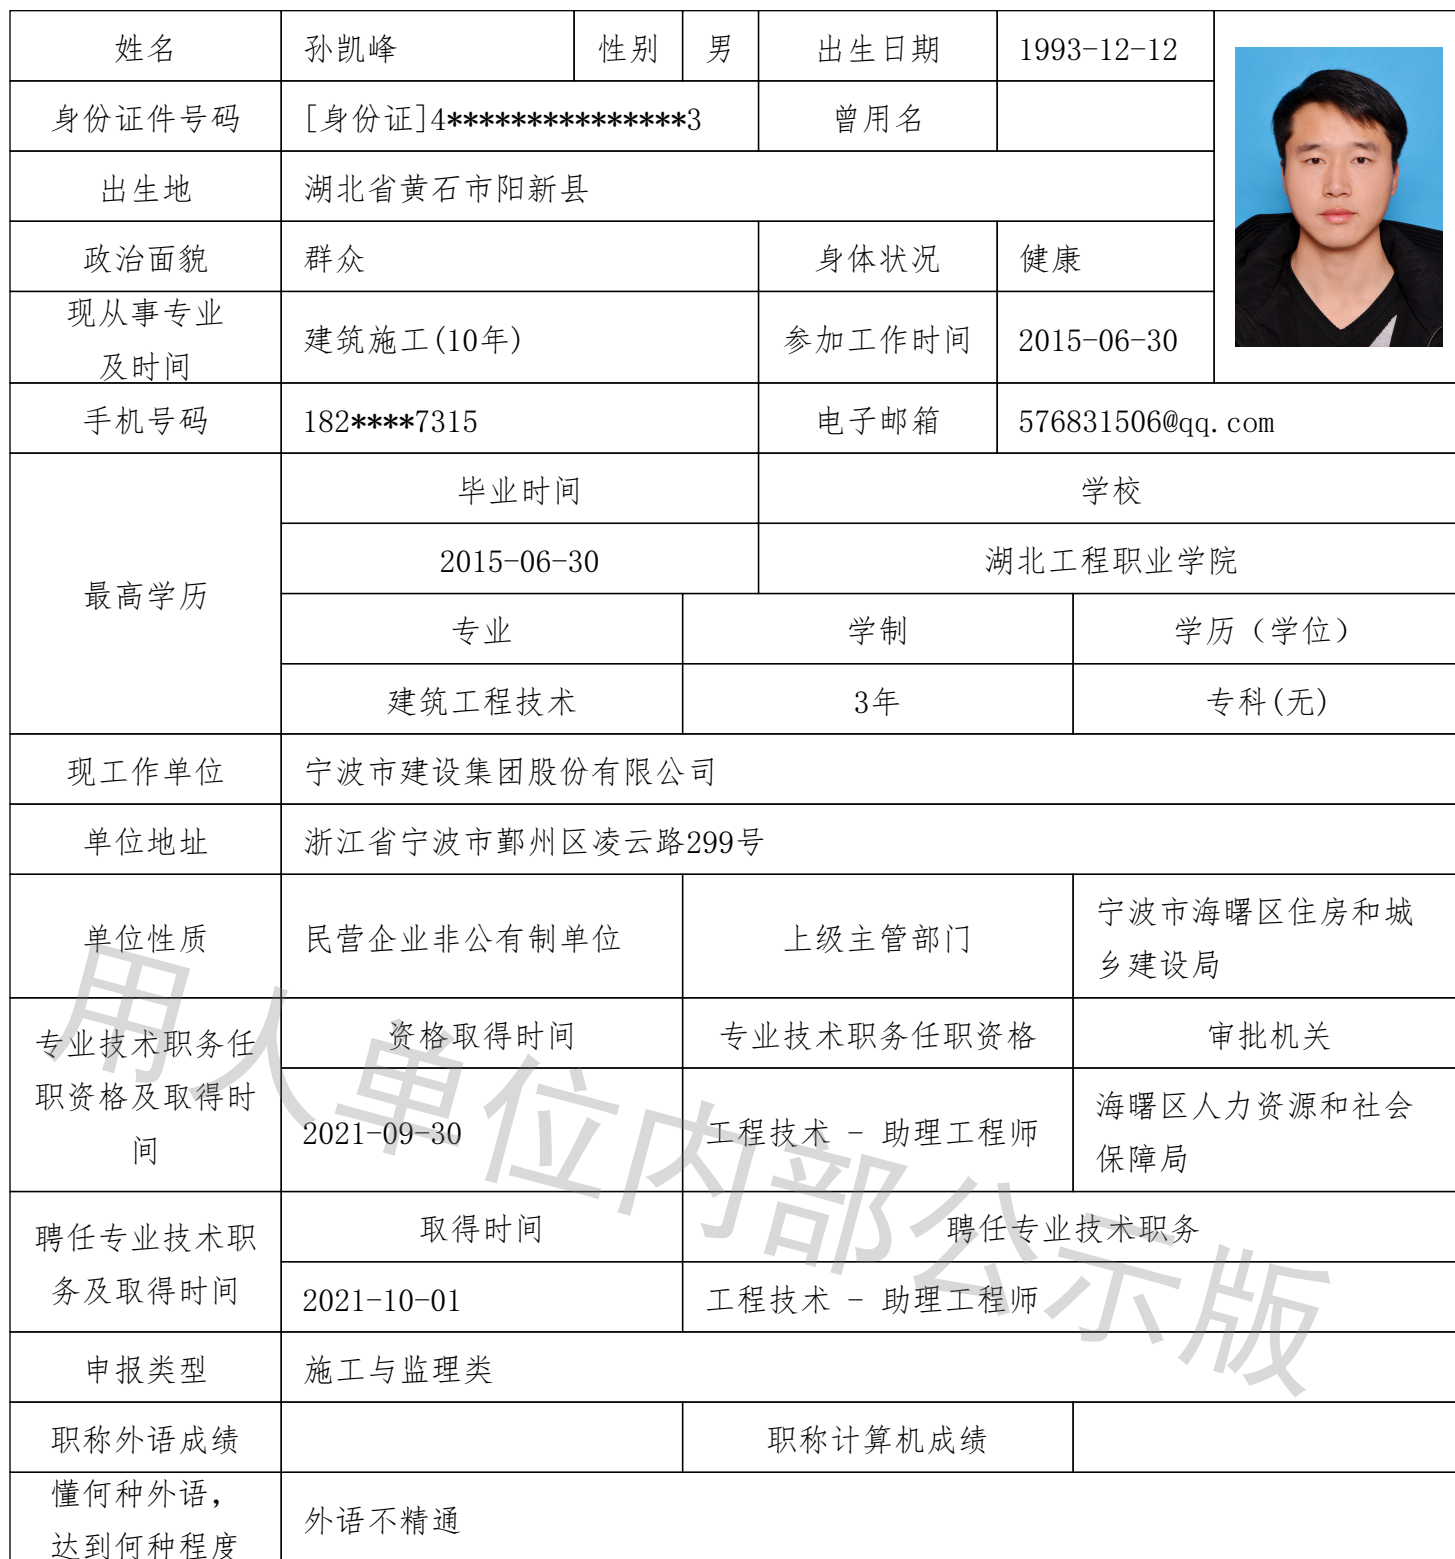 姓名 孙凯峰 性别 男 出生日期 1993-12-12
身份证件号码 [身份证]4***************3 曾用名
出生地 湖北省黄石市阳新县
政治面貌 群众 身体状况 健康
现从事专业
及时间
建筑施工(10年) 参加工作时间 2015-06-30
手机号码 182****7315 电子邮箱 576831506@qq.com
最高学历
毕业时间 学校
2015-06-30 湖北工程职业学院
专业 学制 学历（学位）
建筑工程技术 3年 专科(无)
现工作单位 宁波市建设集团股份有限公司
单位地址 浙江省宁波市鄞州区凌云路299号
单位性质 民营企业非公有制单位 上级主管部门
宁波市海曙区住房和城
乡建设局
专业技术职务任
职资格及取得时
间
资格取得时间 专业技术职务任职资格 审批机关
2021-09-30 工程技术 - 助理工程师
海曙区人力资源和社会
保障局
聘任专业技术职
务及取得时间
取得时间 聘任专业技术职务
2021-10-01 工程技术 - 助理工程师
申报类型 施工与监理类
职称外语成绩 职称计算机成绩
懂何种外语，
达到何种程度
外语不精通
用人单位内部公示版